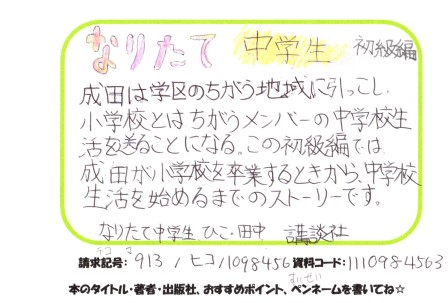 なりたて 中学生 初級編
成田は学区のちがう地域に引っこし、
小学校とはちがうメンバーの中学校生
活を送ることになる。この初級編では
成田が小学校を卒業するときから、中学校
生活を始めるまでのストーリーです。
なりたて中学生 ひこ・田中 講談社
請求記号: 913 / ヒコ / 1098456 資料コード: 1110984563
すいせい
本のタイトル・著者・出版社、おすすめポイント、ペンネームを書いてね☆